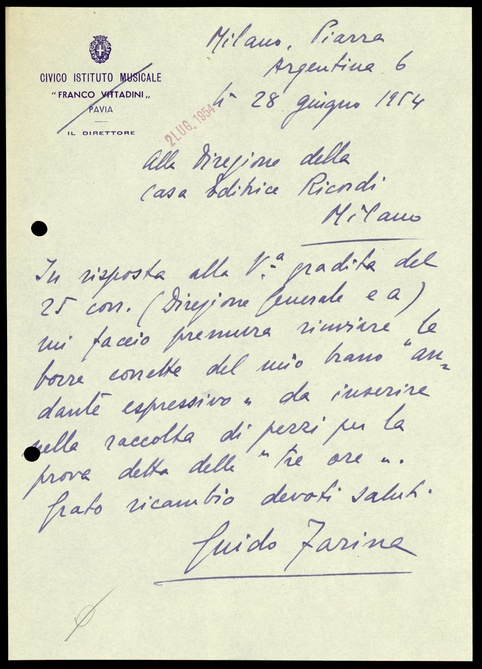 CIVICO ISTITUTO MUSICALE
"FRANCO VITTADINI"
PAVIA
IL DIRETTORE
Milano, Piazza
Argentina 6
li 28 giugno 1954
2 LUG. 1954
Alla Direzione della
Casa Editrice Ricordi
Milano
In risposta alla V.a gradita del
25 corr. (Direzione Generale e a)
mi faccio premura rinviare le
bozze corrette del mio brano "an=
dante espressivo" da inserire
nella raccolta di pezzi per la
prova detta delle "tre ore".
Grato ricambio devoti saluti.
Guido Farina